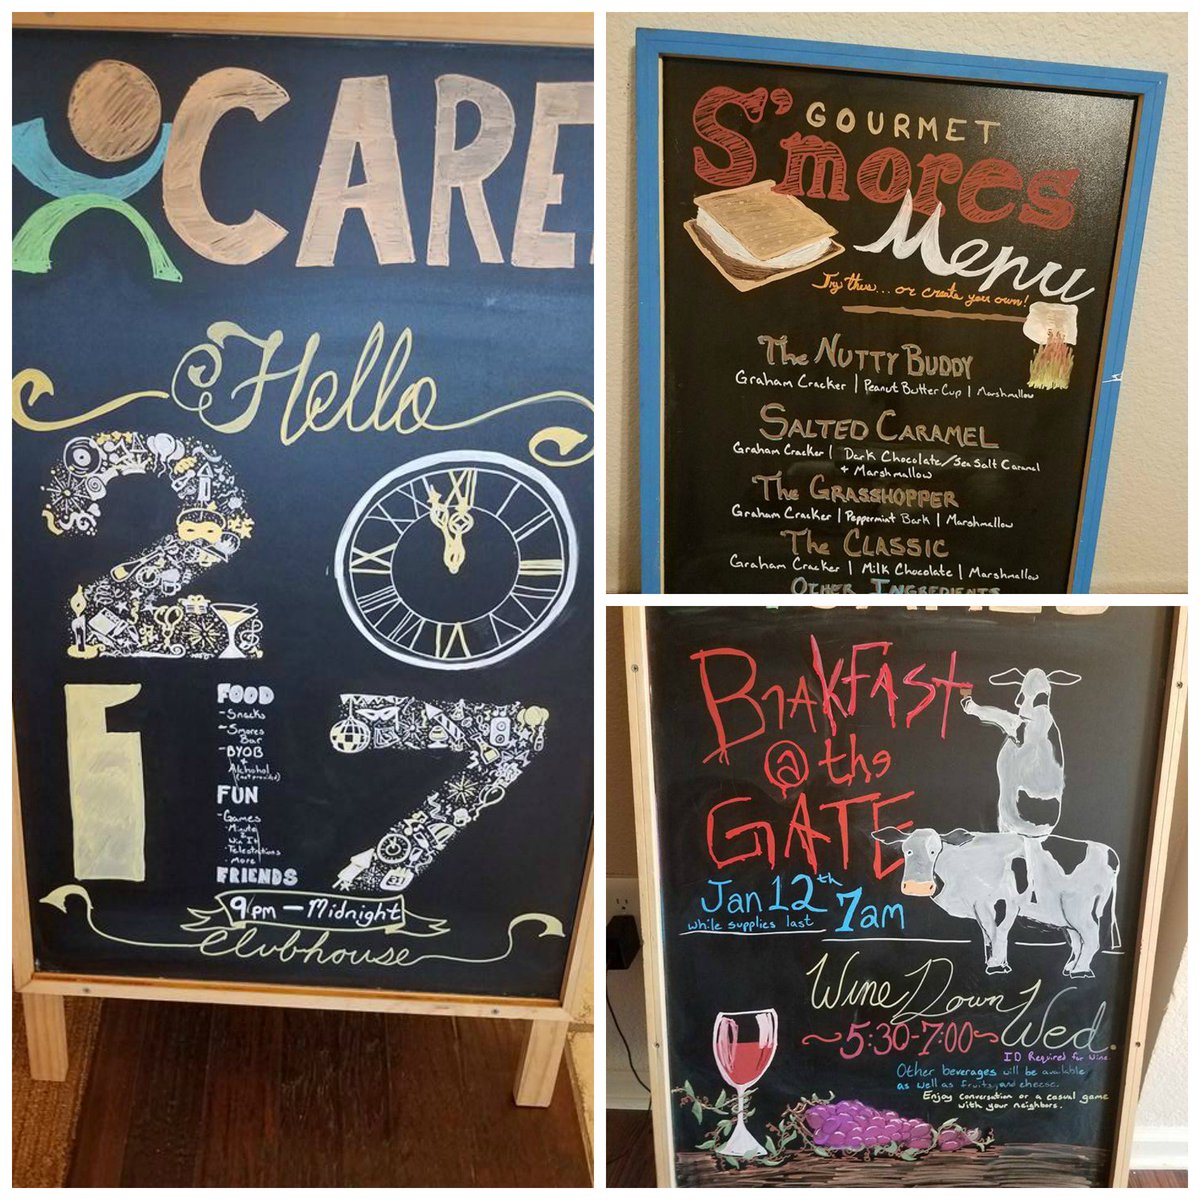 CARE
Hello
20
17
FOOD
- Snacks
- Smores
Bar
- BYOB
&
Alchohol
(not provided)
FUN
- Games
- Minute
2
Win It
- Telestrations
- more
FRIENDS
9/pm - Midnight
Clubhouse
GOURMET
S'mores
Menu
Try this... or create your own!
The NUTTY BUDDY
Graham Cracker | Peanut Butter Cup | Marshmallow
SALTED CARAMEL
Graham Cracker | Dark Chocolate/Sea Salt Caramel
+ Marshmallow
The GRASSHOPPER
Graham Cracker | Peppermint Bark | Marshmallow
The CLASSIC
Graham Cracker | Milk Chocolate | Marshmallow
OTHER INGREDIENTS
BrEAKFAST
@ the
GATE
Jan 12th 7am
while supplies last
Wine Down Wed.
~5:30-7:00~
ID Required for wine.
Other beverages will be available
as well as fruits, and cheese.
Enjoy conversation or a casual game
with your neighbors.